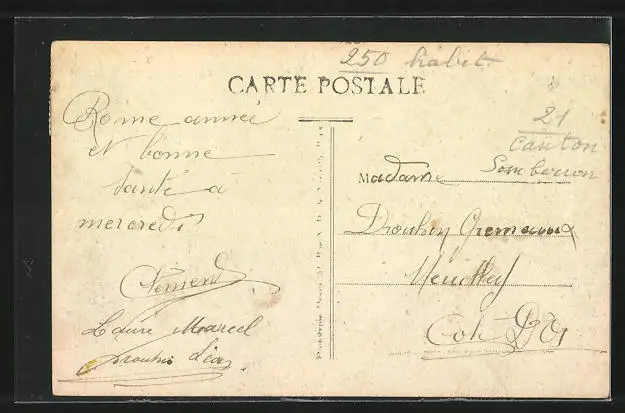 250 habit.
CARTE POSTALE
Bonne année
et bonne
santé à
mercredi
Clemend
Laure Marcel
Drouhin Léa
21
canton
Sombernon
Madame
Drouhin Gremaux
Côte-D'Or